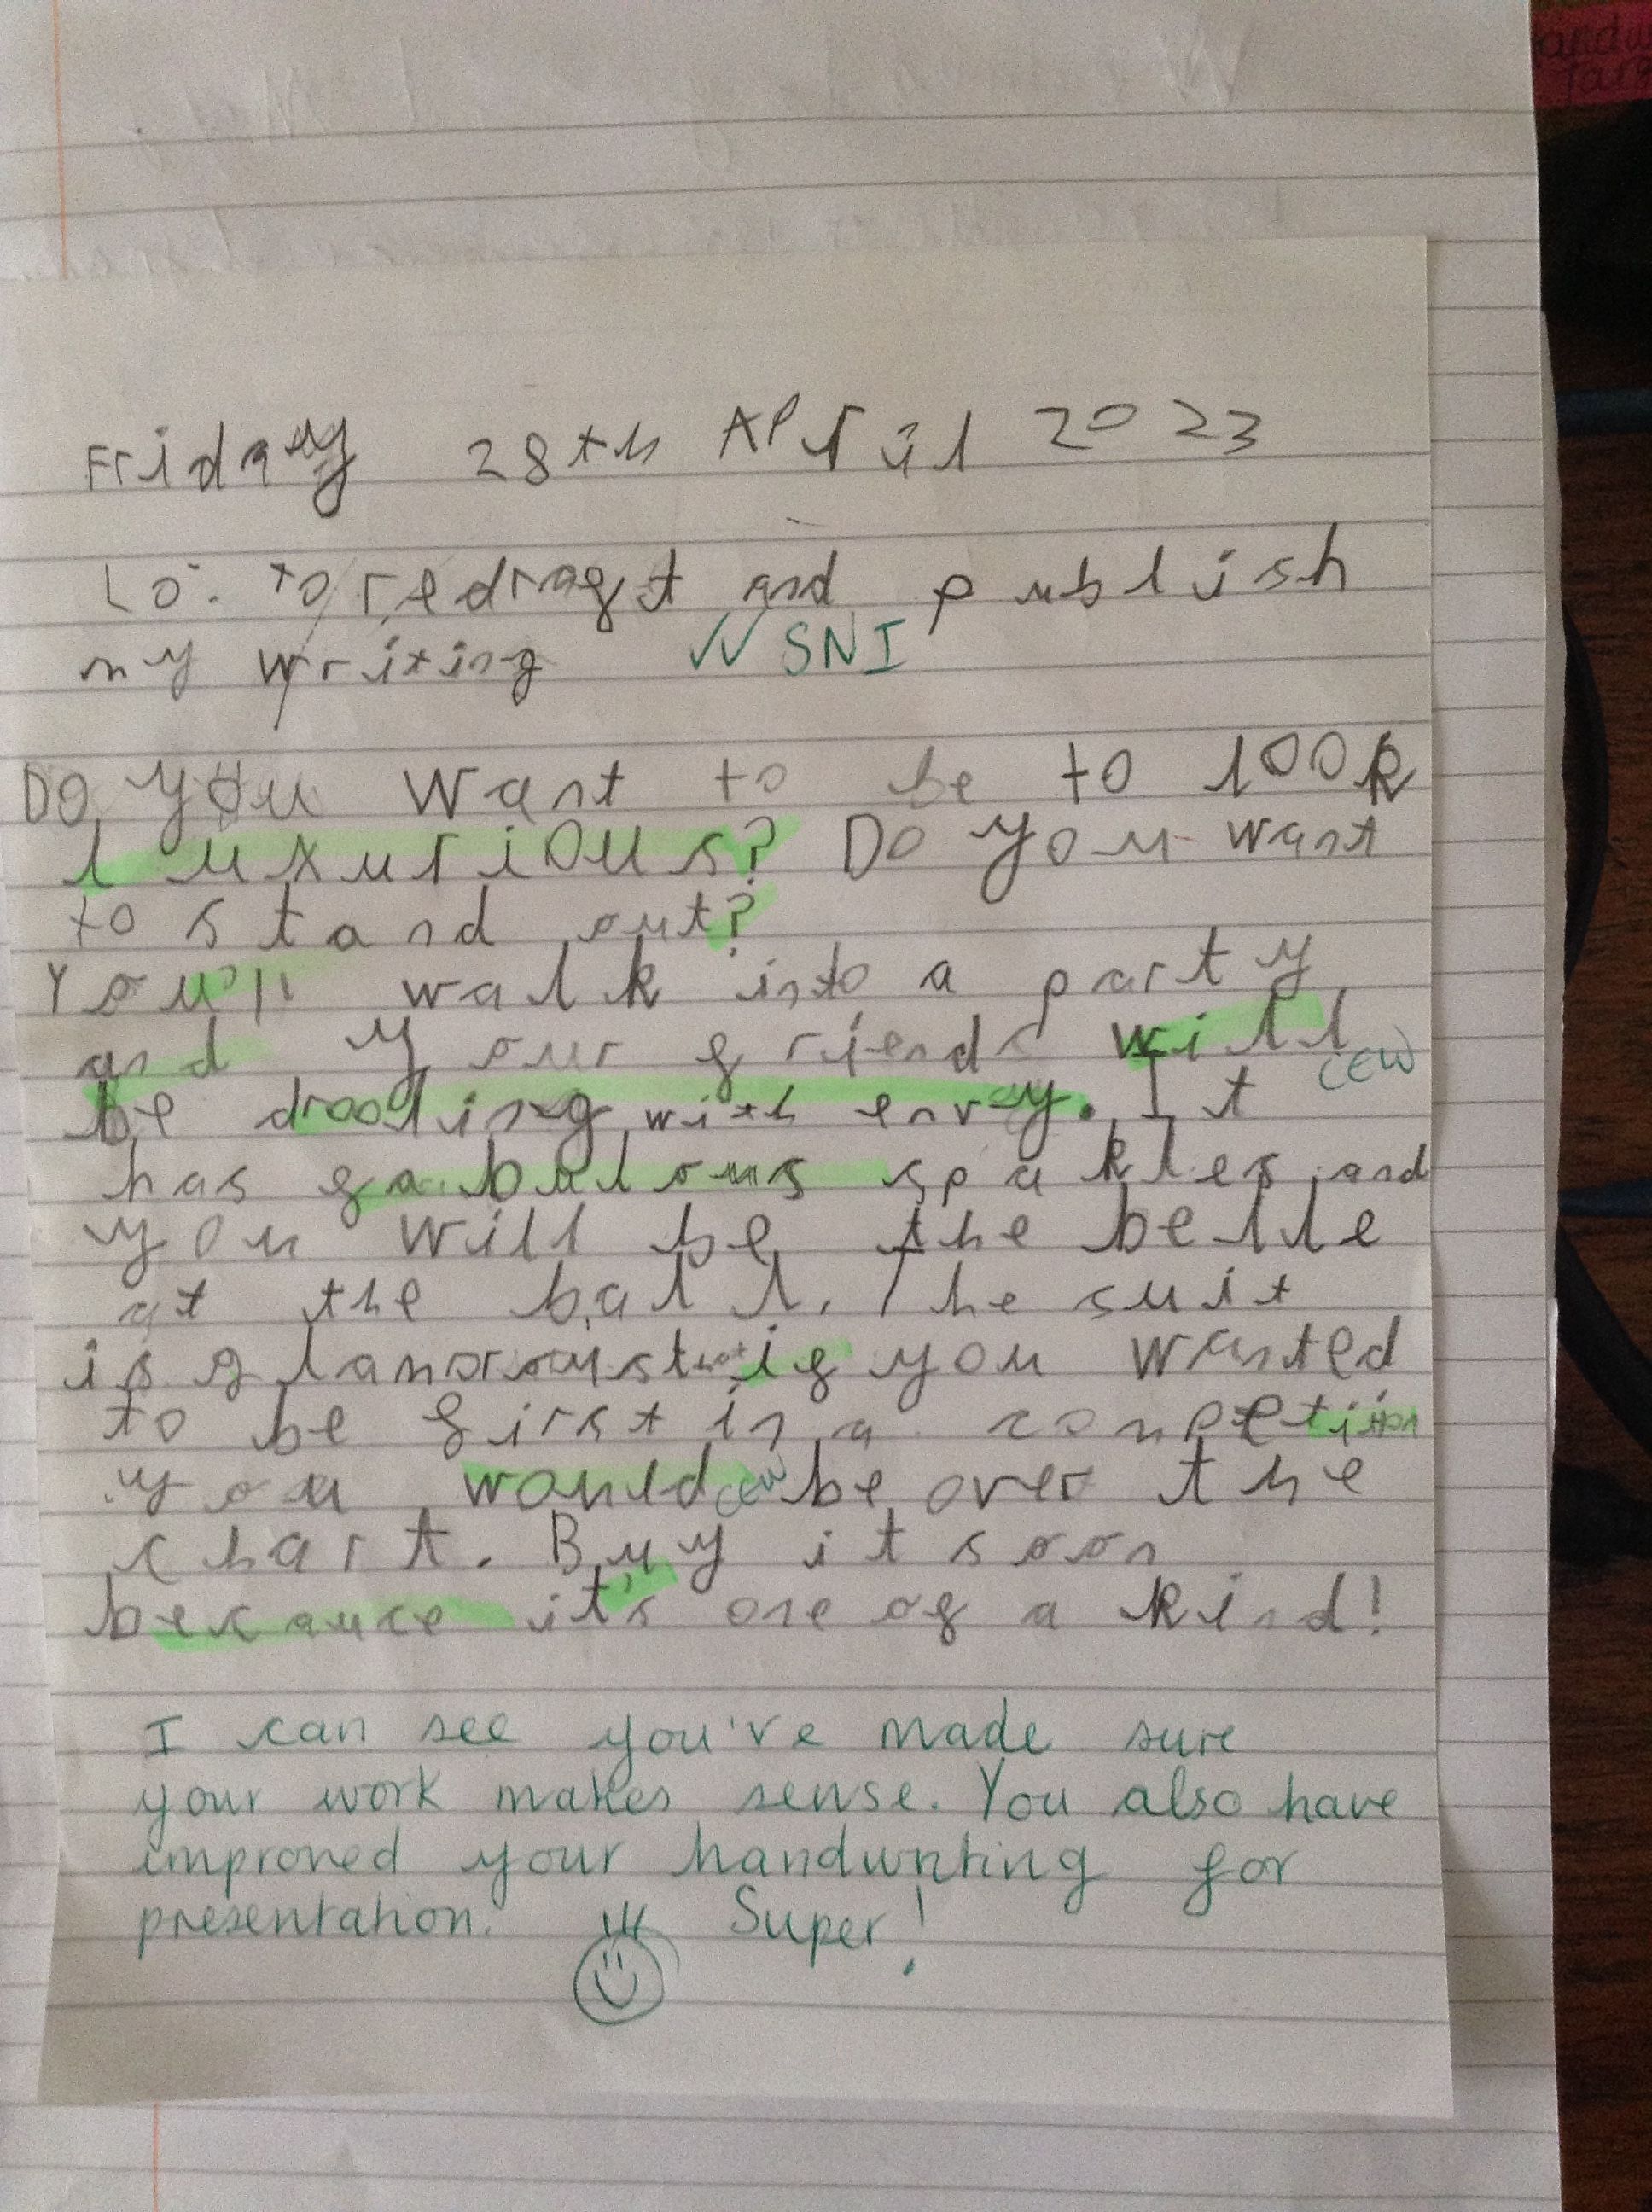 Friday 28th APril 2023
Lo: to redraft and publish
my writing ✓✓ SNI
Do you want to be to look
luxurious? Do you want
to stand out?
You'll walk into a party
and your friends will
CEW
be drooling with envy. It
has fabulous spakles and
you will be the belle
at the ball. The suit
is glamorous that if you wanted
to be first in a competition
you would CEW be over the
chart. Buy it soon
because it's one of a kind!
I can see you've made sure
your work makes sense. You also have
improved your handwriting for
presentation. Super!